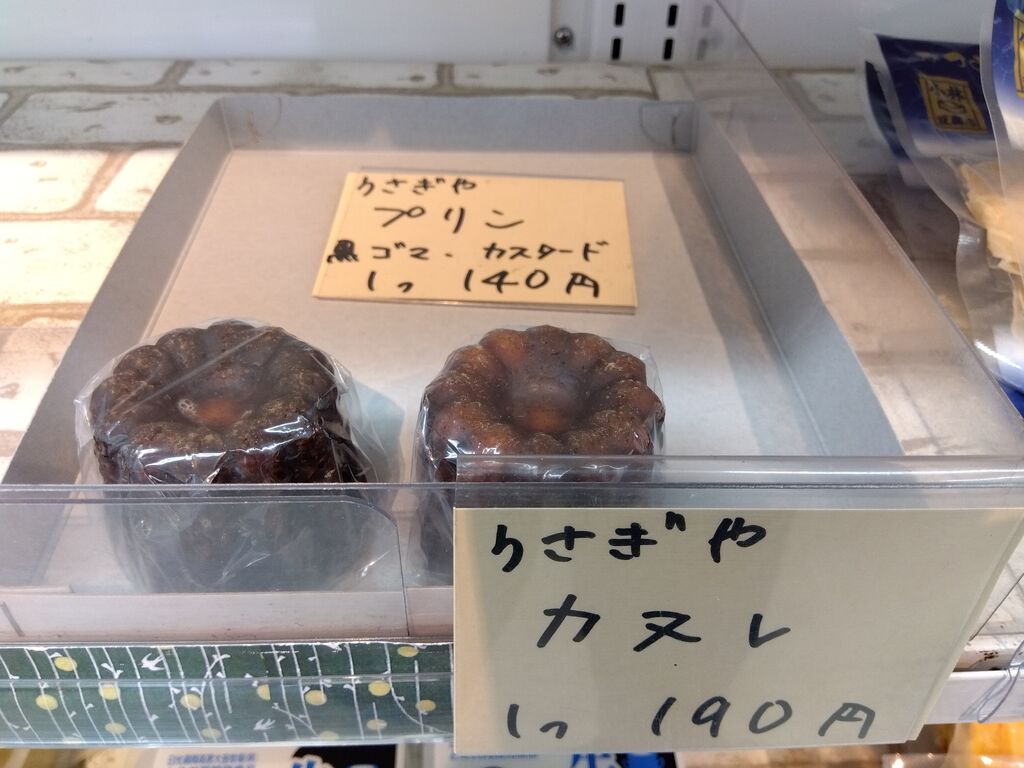 うさぎや
プリン
黒ゴマ・カスタード
1つ 140円
うさぎや
カヌレ
1つ 190円